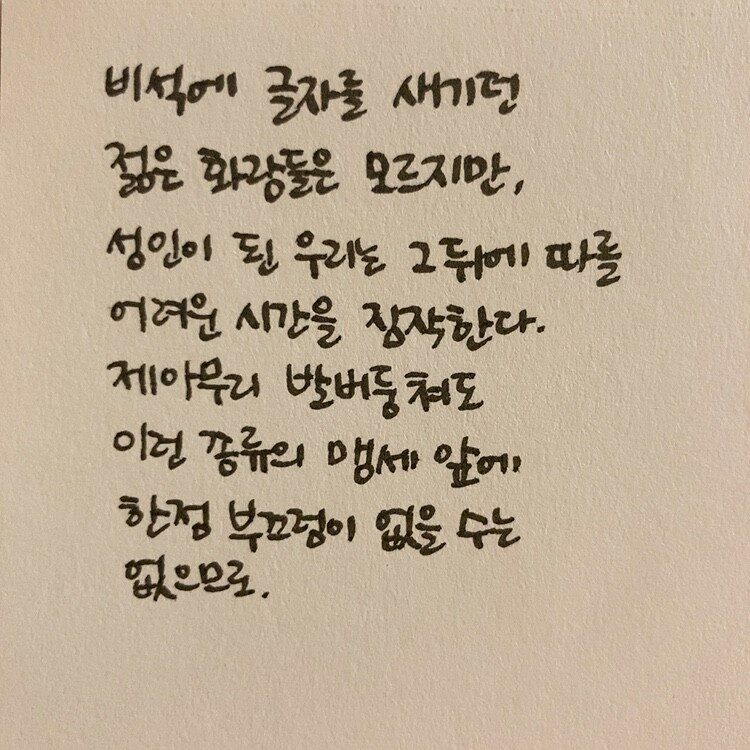 비석에 글자를 새기던
젊은 화랑들은 모르지만,
성인이 된 우리는 그 뒤에 따를
어려운 시간을 짐작한다.
제아무리 발버둥쳐도
이런 종류의 맹세 앞에
한점 부끄럼이 없을 수는
없으므로.